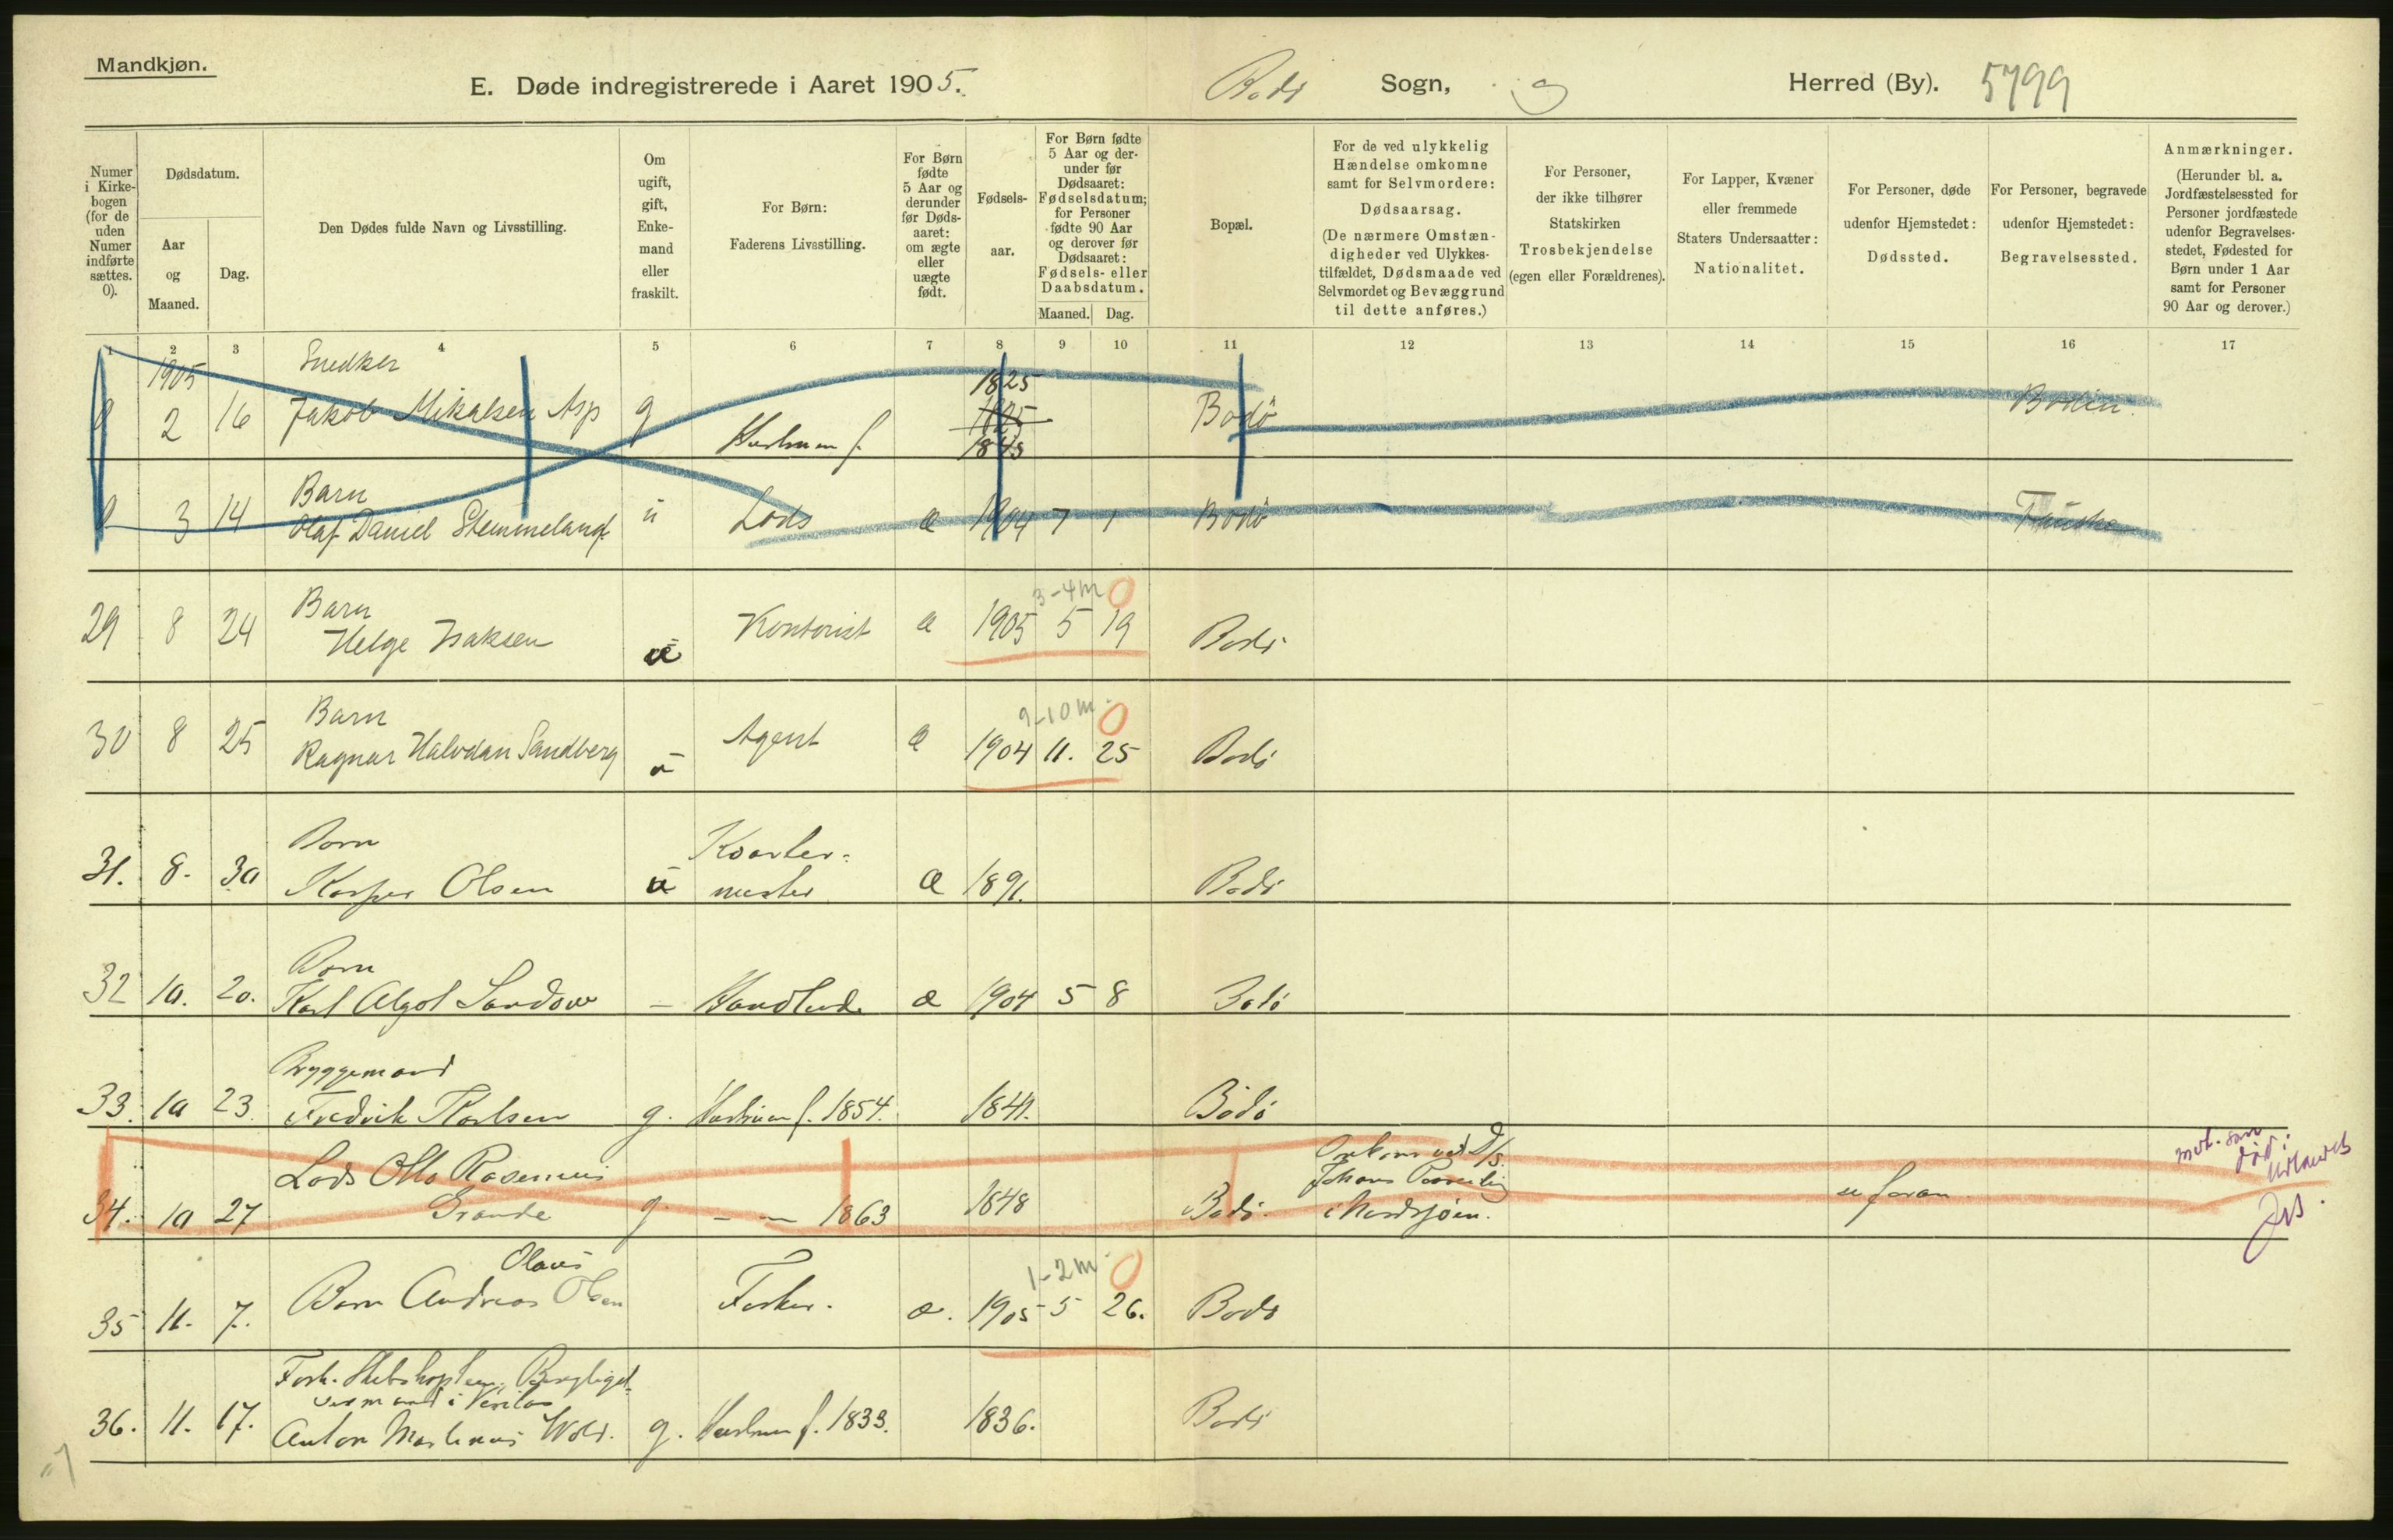 Mandkjøn.
E. Døde indregistrerede i Aaret 1905. Bodø Sogn, Herred (By). 5799
Numer i Kirkebogen (for de uden Numer indførte sættes. 0).
Dødsdatum.
Aar og Maaned.
Dag.
Den Dødes fulde Navn og Livsstilling.
Om ugift, gift, Enkemand eller fraskilt.
For Børn: Faderens Livsstilling.
For Børn fødte 5 Aar og derunder før Dødsaaret: om ægte eller uægte født.
Fødselsaar.
For Børn fødte 5 Aar og derunder før Dødsaaret: Fødselsdatum; for Personer fødte 90 Aar og derover før Dødsaaret: Fødsels- eller Daabsdatum.
Maaned. Dag.
Bopæl.
For de ved ulykkelig Hændelse omkomne samt for Selvmordere: Dødsaarsag. (De nærmere Omstændigheder ved Ulykkestilfældet, Dødsmaade ved Selvmordet og Bevæggrund til dette anføres.)
For Personer, der ikke tilhører Statskirken Trosbekjendelse (egen eller Forældrenes).
For Lapper, Kvæner eller fremmede Staters Undersaatter: Nationalitet.
For Personer, døde udenfor Hjemstedet: Dødssted.
For Personer, begravede udenfor Hjemstedet: Begravelsessted.
Anmærkninger. (Herunder bl. a. Jordfæstelsessted for Personer jordfæstede udenfor Begravelsesstedet, Fødested for Børn under 1 Aar samt for Personer 90 Aar og derover.)
1 2 3 4 5 6 7 8 9 10 11 12 13 14 15 16 17
1905 Snedker 1825
0 2 16 Jakob Mikalsen Asp g Hustruen f. 1825 1845 Bodø Bodin.
Barn
0 3 14 Olaf Daniel Stemmeland ü Lods æ 1904 7 1 Bodø Fauske
Barn 3-4 m 0
29 8 24 Helge Isaksen ü Kontorist æ 1905 5 19 Bodø
Barn 9-10 m. 0
30 8 25 Ragnar Halvdan Sandberg - Agent æ 1904 11. 25 Bodø
Barn Kvarter-
31. 8. 30 Kasper Olsen ü mester æ 1891. Bodø
Barn
32 10. 20. Karl Algot Sandow - Handlende æ 1904 5 8 Bodø
Bryggemand
33. 10 23. Fredrik Karlsen g. Hustruen f. 1854. 1841. Bodø
Lods Otto Rasmus Omkom ved D/S.
34. 10 27 Grande g. - - 1863 1848 Bodø. i Nordsjøen. se foran
død i Udlandet
Olaus 1-2 m. 0
35 11. 7. Barn Andreas Olsen Fisker. æ. 1905 5 26. Bodø
Forh. Skibskaptein,
mand i Veritas
36. 11. 17. Anton Martinus Wold. g. Hustruen f. 1833. 1836. Bodø